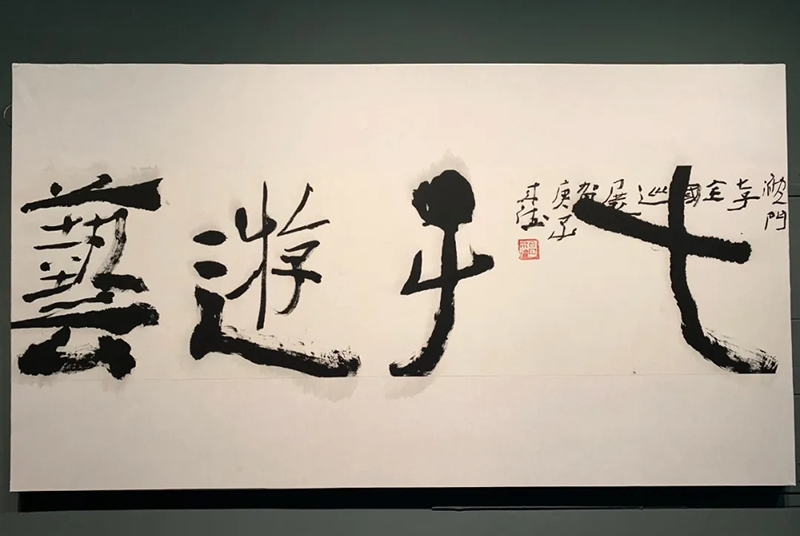 七子遊藝
澳門
七子
全
國
巡
展
賀
庚子